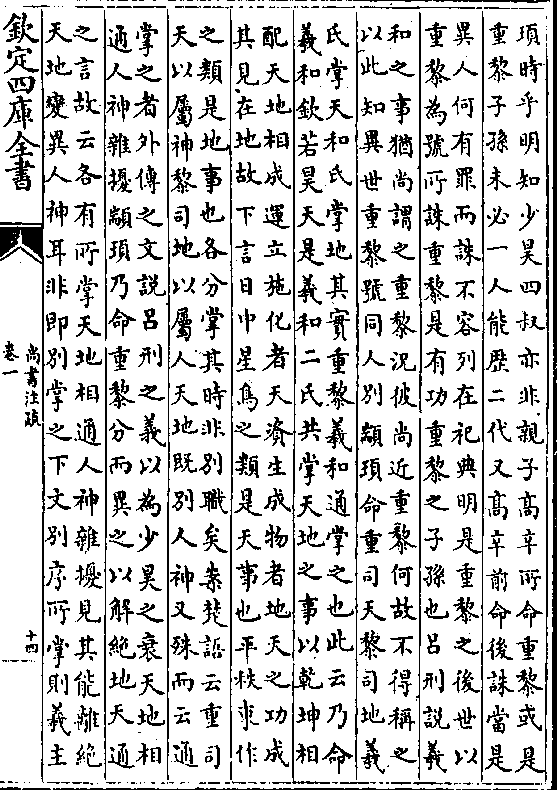 頊時乎明知少昊四叔亦非親子高辛所命重黎或是
重黎子孫未必一人能歷二代又高辛前命後誅當是
異人何有罪而誅不容列在祀典明是重黎之後世以
重黎為號所誅重黎是有功重黎之子孫也呂刑說羲
和之事猶尚謂之重黎況彼尚近重黎何故不得稱之
以此知異世重黎號同人別顓頊命重司天黎司地羲
氏掌天和氏掌地其實重黎羲和通掌之也此云乃命
羲和欽若昊天是羲和二氏共掌天地之事以乾坤相
配天地相成運立施化者天資生成物者地天之功成
其見在地故下言日中星鳥之類是天事也平秩東作
之類是地事也各分掌其時非別職矣案楚語云重司
天以屬神黎司地以屬人天地既別人神又殊而云通
掌之者外傳之文說呂刑之義以為少昊之衰天地相
通人神雜擾顓頊乃命重黎分而異之以解絕地天通
之言故云各有所掌天地相通人神雜擾見其能離絕
天地變異人神耳非即別掌之下文別序所掌則羲主
欽定四庫全書
尚書注疏
卷一
十四